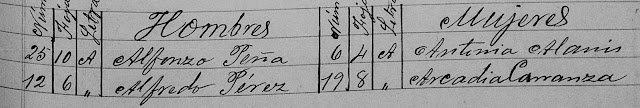 Núm Foja Letra Hombres Núm Foja Letra Mujeres
25 10 A Alfonzo Peña 6 4 A Antinia Alanis
12 6 „ Alfredo Pérez 19 8 „ Arcadia Carranza